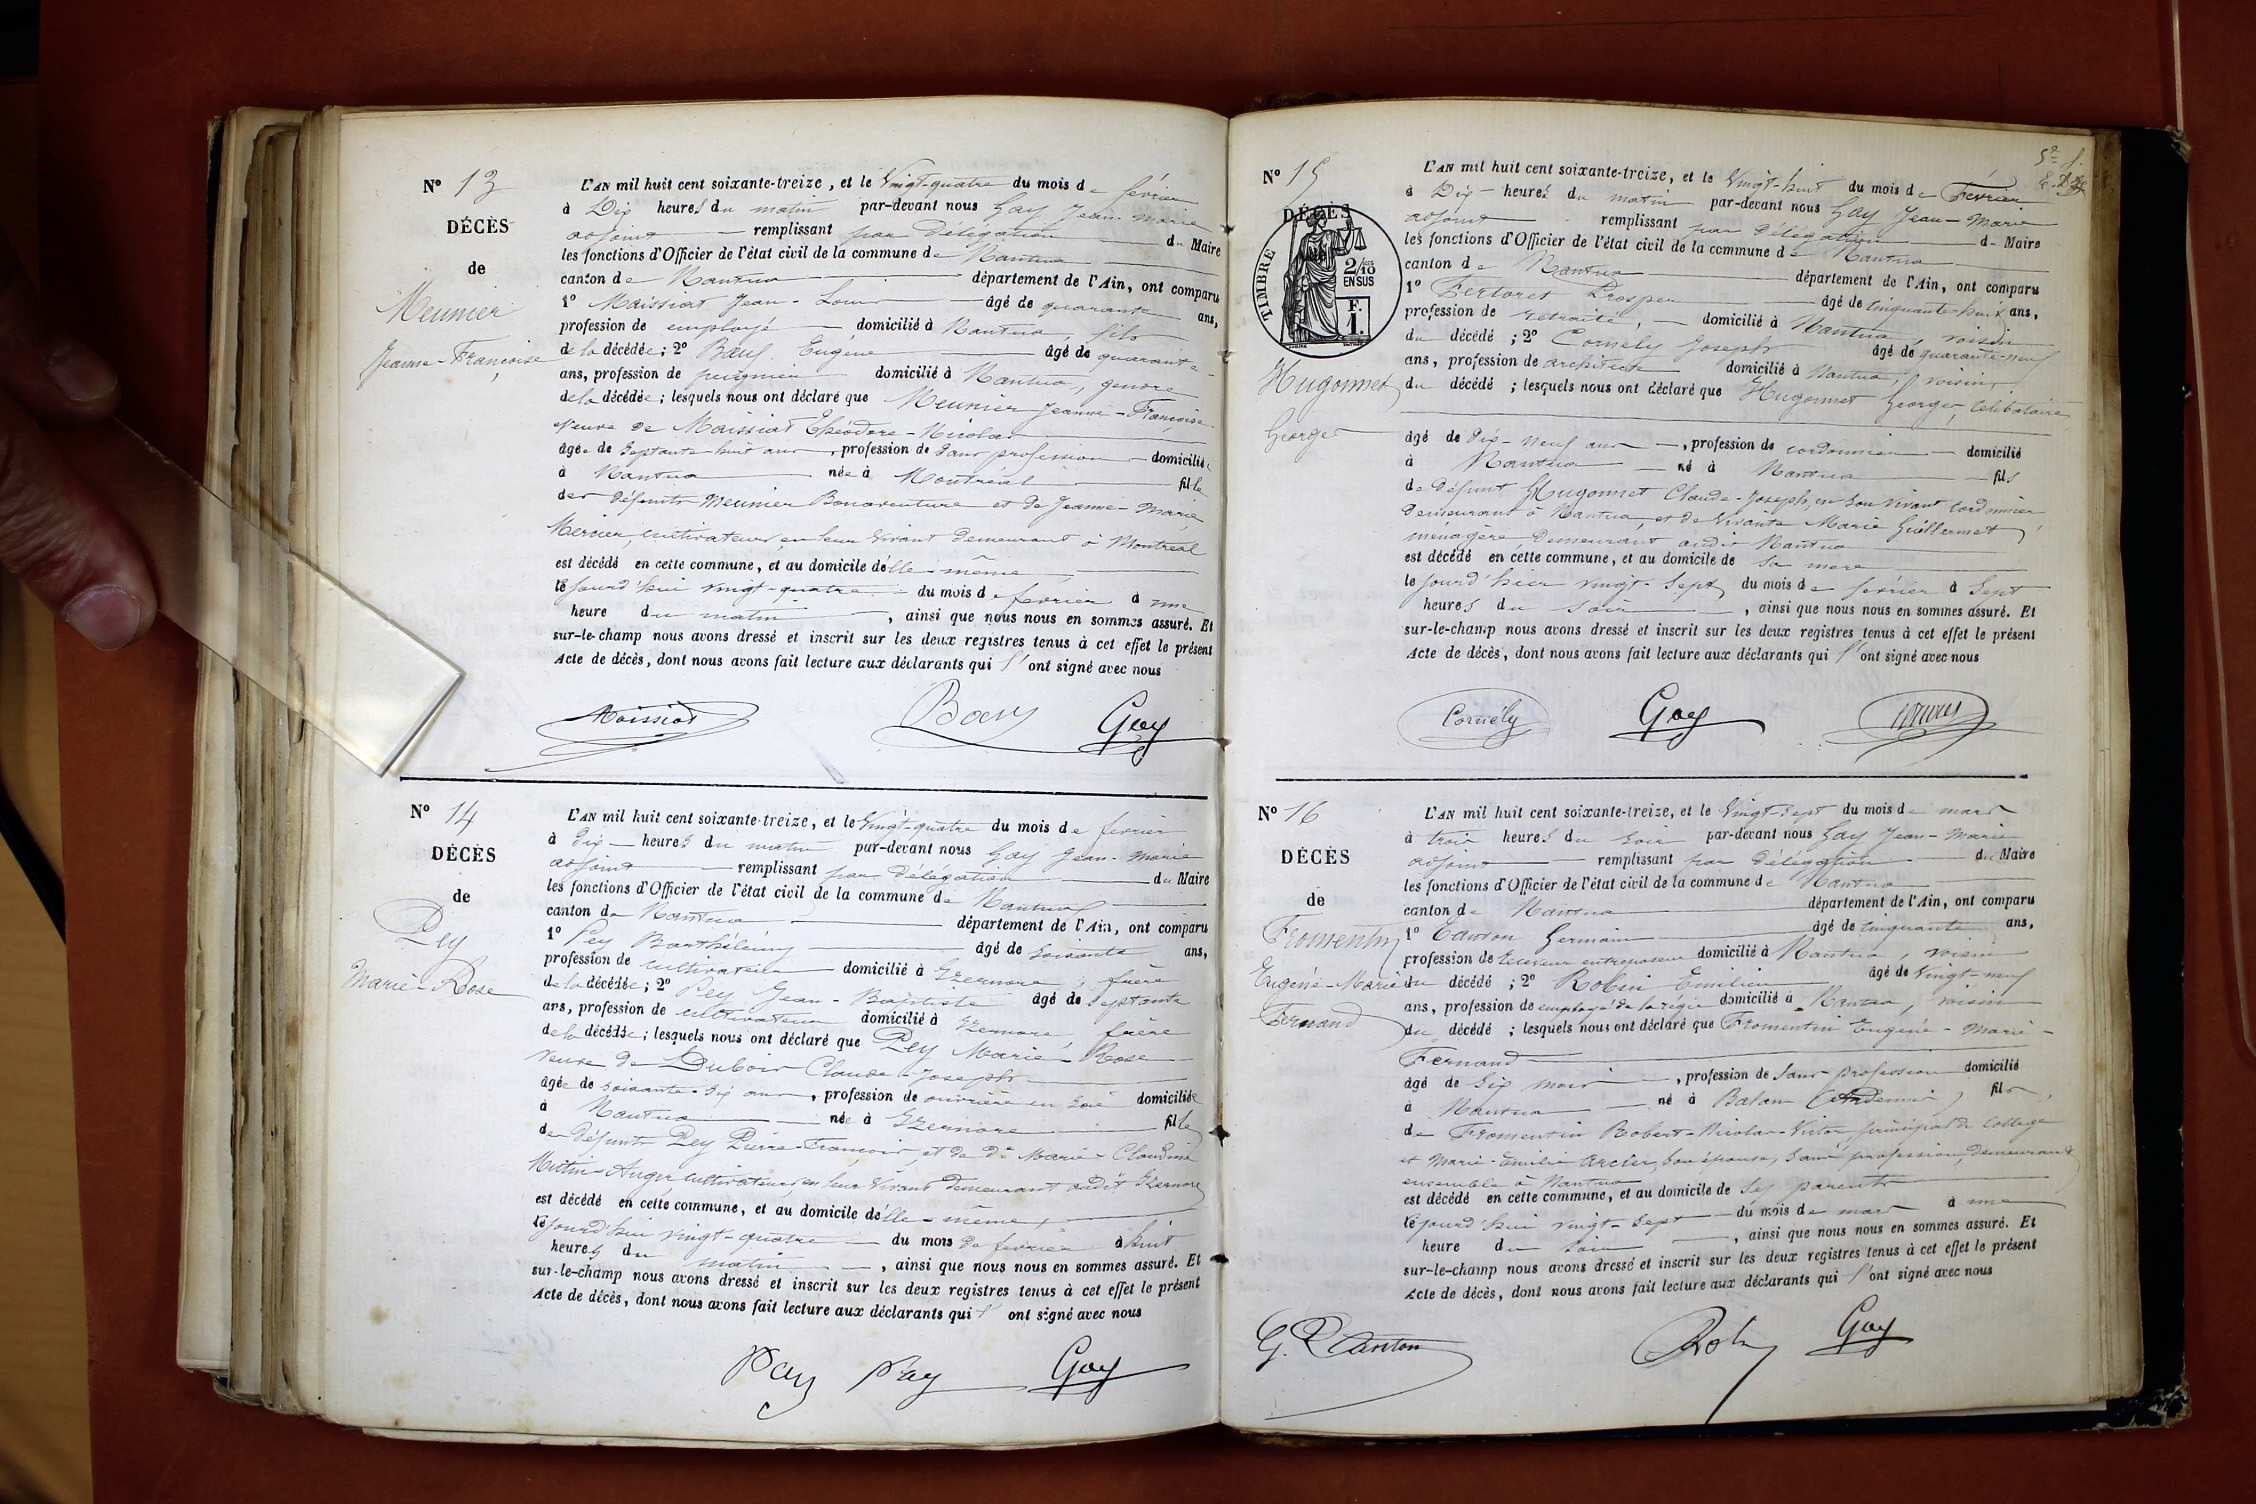 Nº 13
DÉCÈS
de
Meunier
Jeanne-Françoise
L'AN mil huit cent soixante-treize, et le Vingt-quatre du mois de février
à Dix heures du matin par-devant nous Gay Jean-Marie
adjoint remplissant par Délégation du Maire
les fonctions d'Officier de l'état civil de la commune de Nantua
canton de Nantua département de l'Ain, ont comparu
1º Maissiat Jean-Louis âgé de quarante ans,
profession de employé domicilié à Nantua, fils
de la décédée; 2º Eugène âgé de quarante-
ans, profession de domicilié à Nantua, gendre
de la décédée; lesquels nous ont déclaré que Meunier Jeanne-Françoise
Veuve de Maissiat Théodore-Nicolas
âgée de Septante huit ans, profession de Sans profession domiciliée
à Nantua née à Montréal fille
des défunts Meunier Bonaventure et de Jeanne-Marie
Mercier, cultivateurs, en leur vivant demeurant à Montréal
est décédé en cette commune, et au domicile d'elle-même
le jourd'hui vingt-quatre du mois de février à une
heure du matin, ainsi que nous nous en sommes assuré. Et
sur-le-champ nous avons dressé et inscrit sur les deux registres tenus à cet effet le présent
Acte de décès, dont nous avons fait lecture aux déclarants qui l'ont signé avec nous
Maissiat Gay
Nº 14
DÉCÈS
de
Pey
Marie-Rose
L'AN mil huit cent soixante-treize, et le Vingt-quatre du mois de février
à Dix heures du matin par-devant nous Gay Jean-Marie
adjoint remplissant par Délégation du Maire
les fonctions d'Officier de l'état civil de la commune de Nantua
canton de Nantua département de l'Ain, ont comparu
1º Pey Barthélemy âgé de soixante ans,
profession de cultivateur domicilié à Izernore, frère
de la décédée; 2º Pey Jean-Baptiste âgé de septante
ans, profession de cultivateur domicilié à Izernore, frère
de la décédée; lesquels nous ont déclaré que Pey Marie-Rose
veuve de Dubois Claude-Joseph
âgée de soixante-six ans, profession de ouvrière en soie domiciliée
à Nantua née à Izernore fille
de défunts Pey Pierre-François, et de Marie-Claudine
cultivateurs, en leur vivant demeurant audit Izernore
est décédé en cette commune, et au domicile d'elle-même,
le jourd'hui vingt-quatre du mois de février à huit
heures du matin, ainsi que nous nous en sommes assuré. Et
sur-le-champ nous avons dressé et inscrit sur les deux registres tenus à cet effet le présent
Acte de décès, dont nous avons fait lecture aux déclarants qui l'ont signé avec nous
Pey Pey Gay
Nº 15
DÉCÈS
TIMBRE
2/10
EN SUS
F.
1.
Hugonnet
George
L'AN mil huit cent soixante-treize, et le Vingt-huit du mois de Février
à Dix heures du matin par-devant nous Gay Jean-Marie
adjoint remplissant par Délégation du Maire
les fonctions d'Officier de l'état civil de la commune de Nantua
canton de Nantua département de l'Ain, ont comparu
1º Prosper âgé de cinquante-huit ans,
profession de retraité, domicilié à Nantua, voisin
du décédé; 2º Cornély Joseph âgé de quarante-neuf
ans, profession de architecte domicilié à Nantua, voisin
du décédé; lesquels nous ont déclaré que Hugonnet George, célibataire
âgé de dix-neuf ans, profession de cordonnier domicilié
à Nantua né à Nantua fils
de défunt Hugonnet Claude-Joseph, en son vivant cordonnier
demeurant à Nantua, et de vivante Marie Guillermet,
ménagère demeurant audit Nantua
est décédé en cette commune, et au domicile de sa mère
le jourd'hier vingt-sept du mois de février à sept
heures du soir, ainsi que nous nous en sommes assuré. Et
sur-le-champ nous avons dressé et inscrit sur les deux registres tenus à cet effet le présent
Acte de décès, dont nous avons fait lecture aux déclarants qui l'ont signé avec nous
Cornély Gay
Nº 16
DÉCÈS
de
Fromentin
Eugène-Marie
Fernand
L'AN mil huit cent soixante-treize, et le Vingt-sept du mois de mars
à trois heures du soir par-devant nous Gay Jean-Marie
adjoint remplissant par Délégation du Maire
les fonctions d'Officier de l'état civil de la commune de Nantua
canton de Nantua département de l'Ain, ont comparu
1º Germain âgé de cinquante ans,
profession de Receveur entreposeur domicilié à Nantua, voisin
du décédé; 2º Robin Emilien âgé de vingt-neuf
ans, profession de employé de la régie domicilié à Nantua, voisin
du décédé; lesquels nous ont déclaré que Fromentin Eugène-Marie-
Fernand
âgé de six mois, profession de sans profession domicilié
à Nantua né à Balan (Ardennes), fils
de Fromentin Robert-Nicolas-Victor principal de collège
et Marie-Emilie son épouse, sans profession, demeurant
ensemble à Nantua
est décédé en cette commune, et au domicile de ses parents
le jourd'hui vingt-sept du mois de mars à une
heure du soir, ainsi que nous nous en sommes assuré. Et
sur-le-champ nous avons dressé et inscrit sur les deux registres tenus à cet effet le présent
Acte de décès, dont nous avons fait lecture aux déclarants qui l'ont signé avec nous
Gay